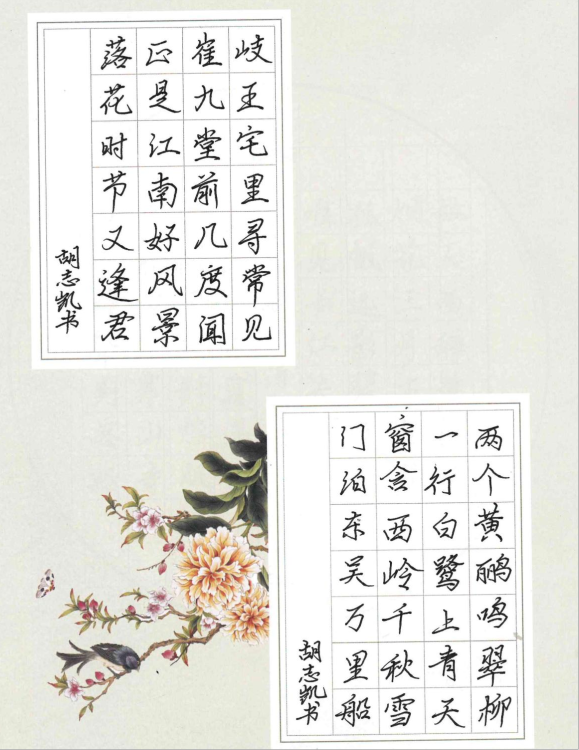 岐王宅里寻常见
崔九堂前几度闻
正是江南好风景
落花时节又逢君
胡志凯书
两个黄鹂鸣翠柳
一行白鹭上青天
窗含西岭千秋雪
门泊东吴万里船
胡志凯书